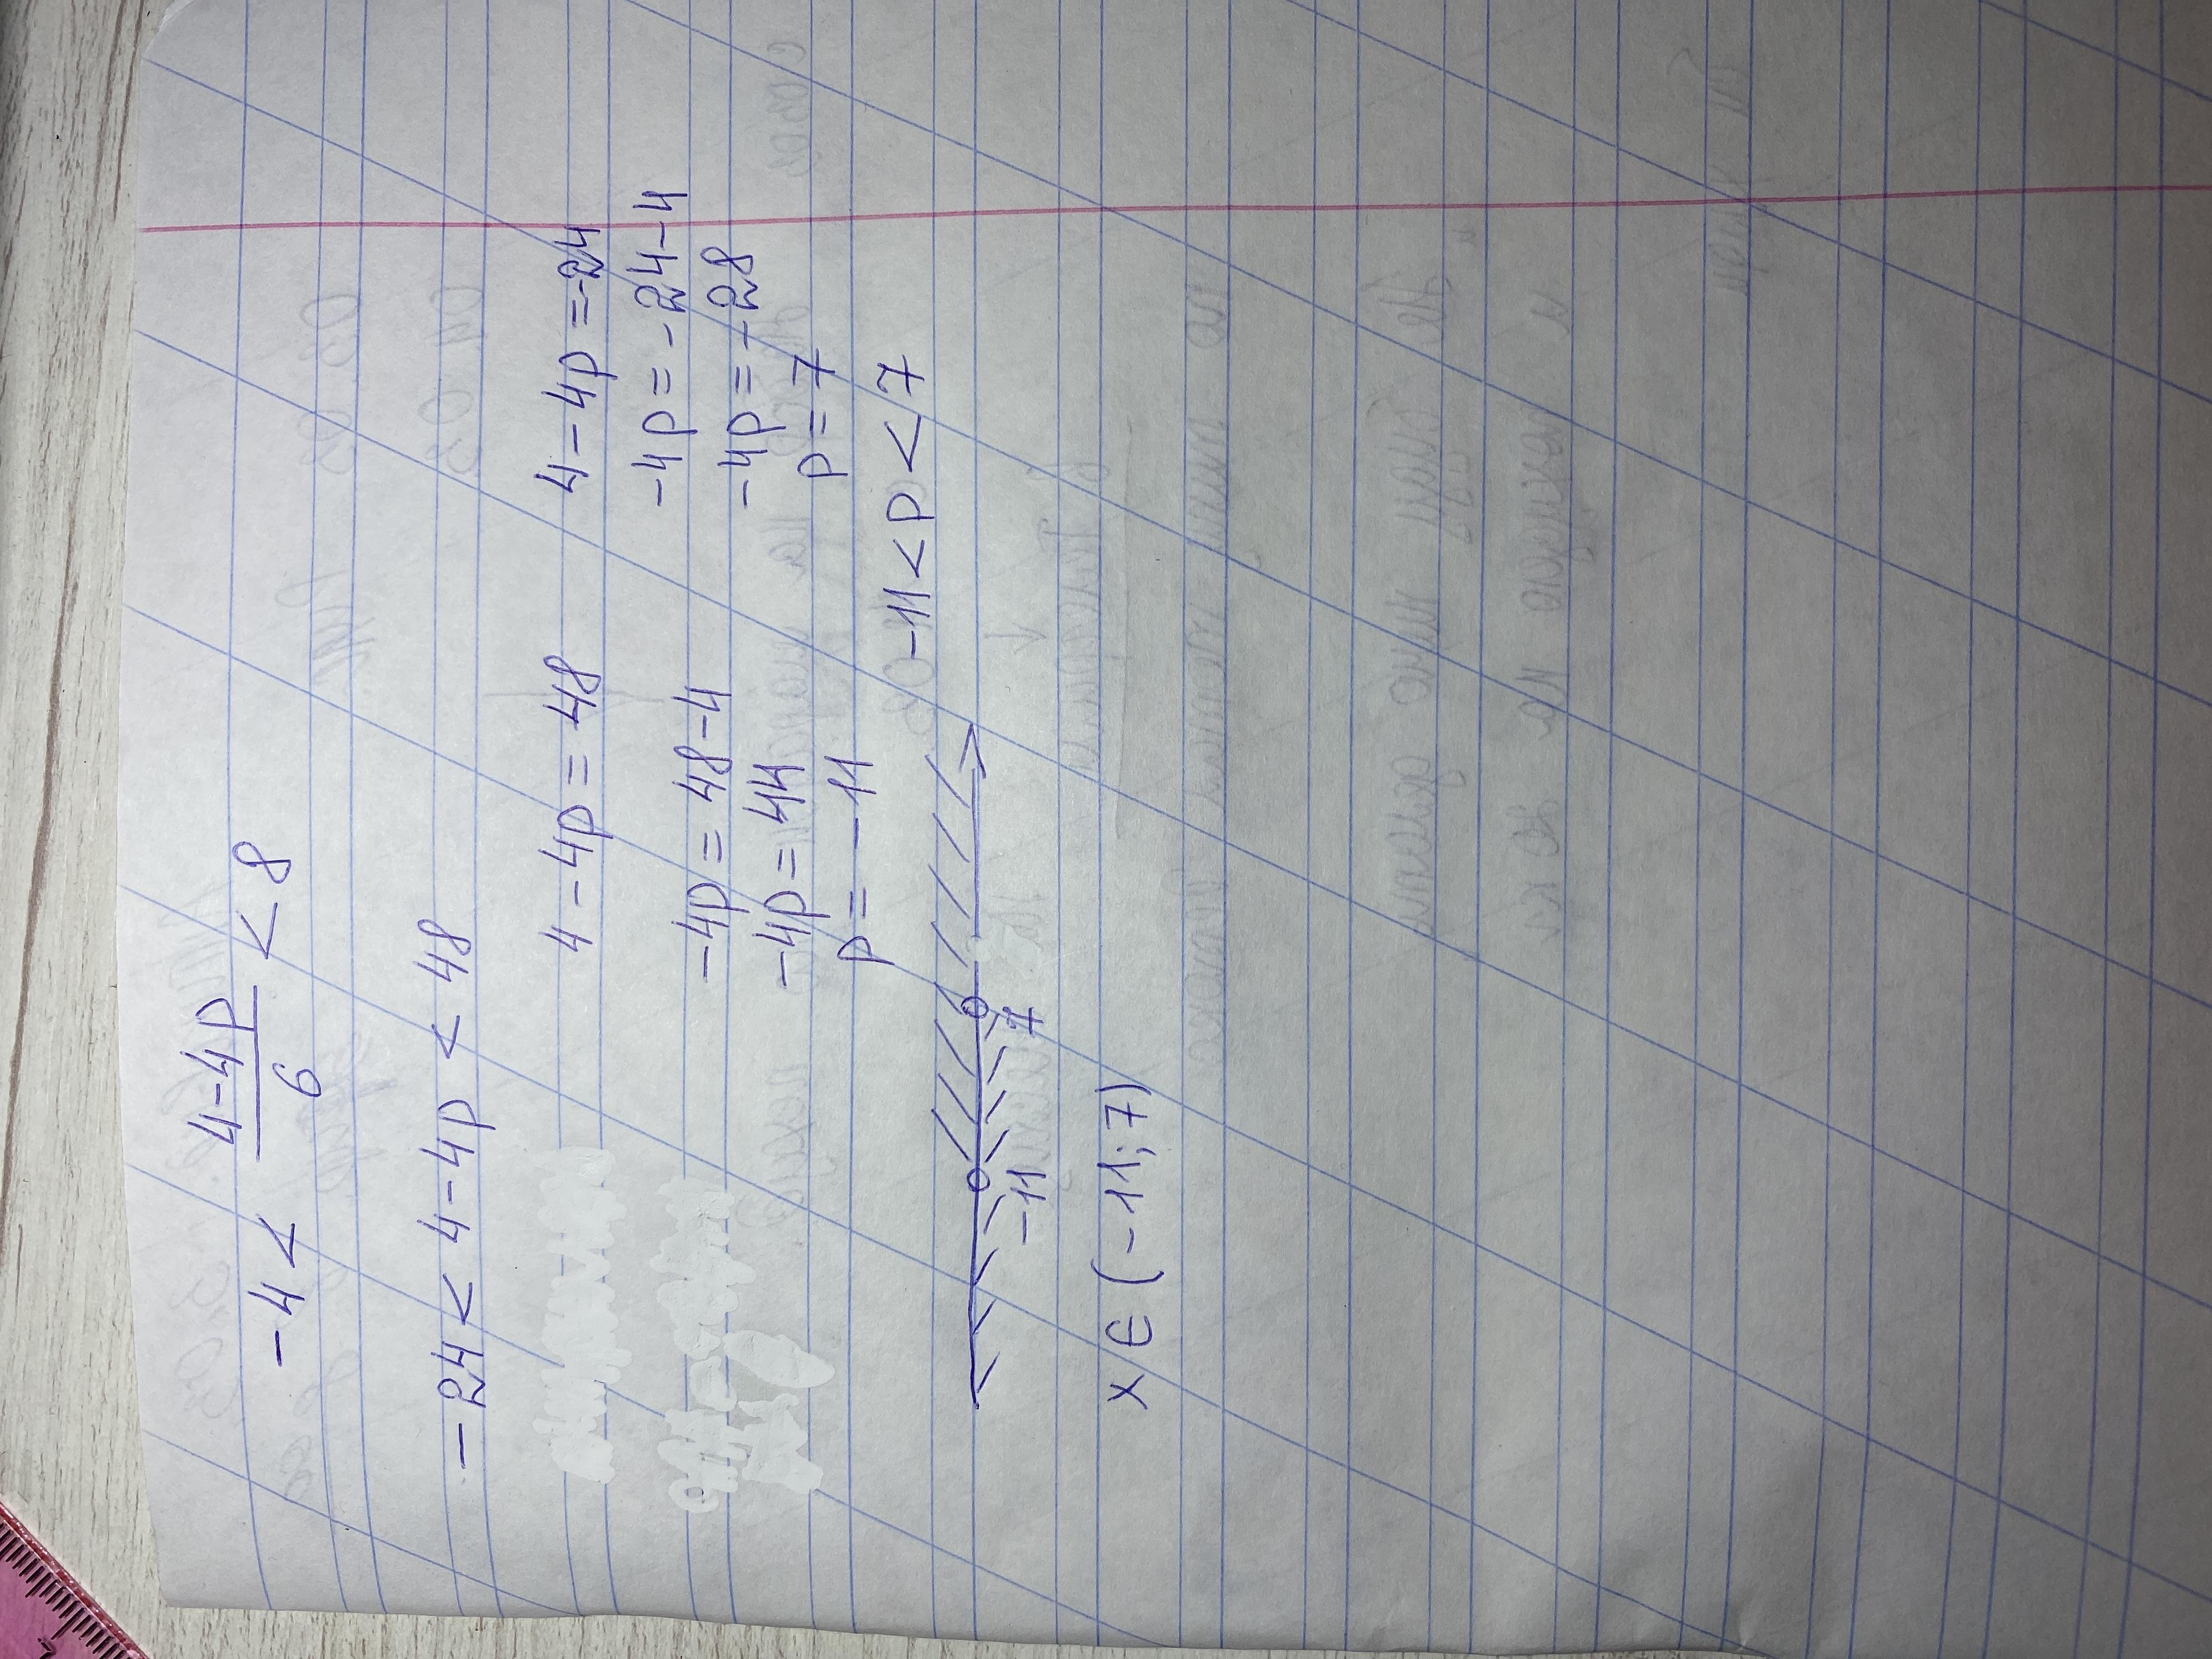 -4 < 4-4p/6 < 8
-24 < 4-4p < 48
4-4p = 48
-4p = 48-4
-4p = 44
p = -11
4-4p = -24
-4p = -24-4
-4p = -28
p = 7
-11 < p < 7
-11 7
x ∈ (-11; 7)